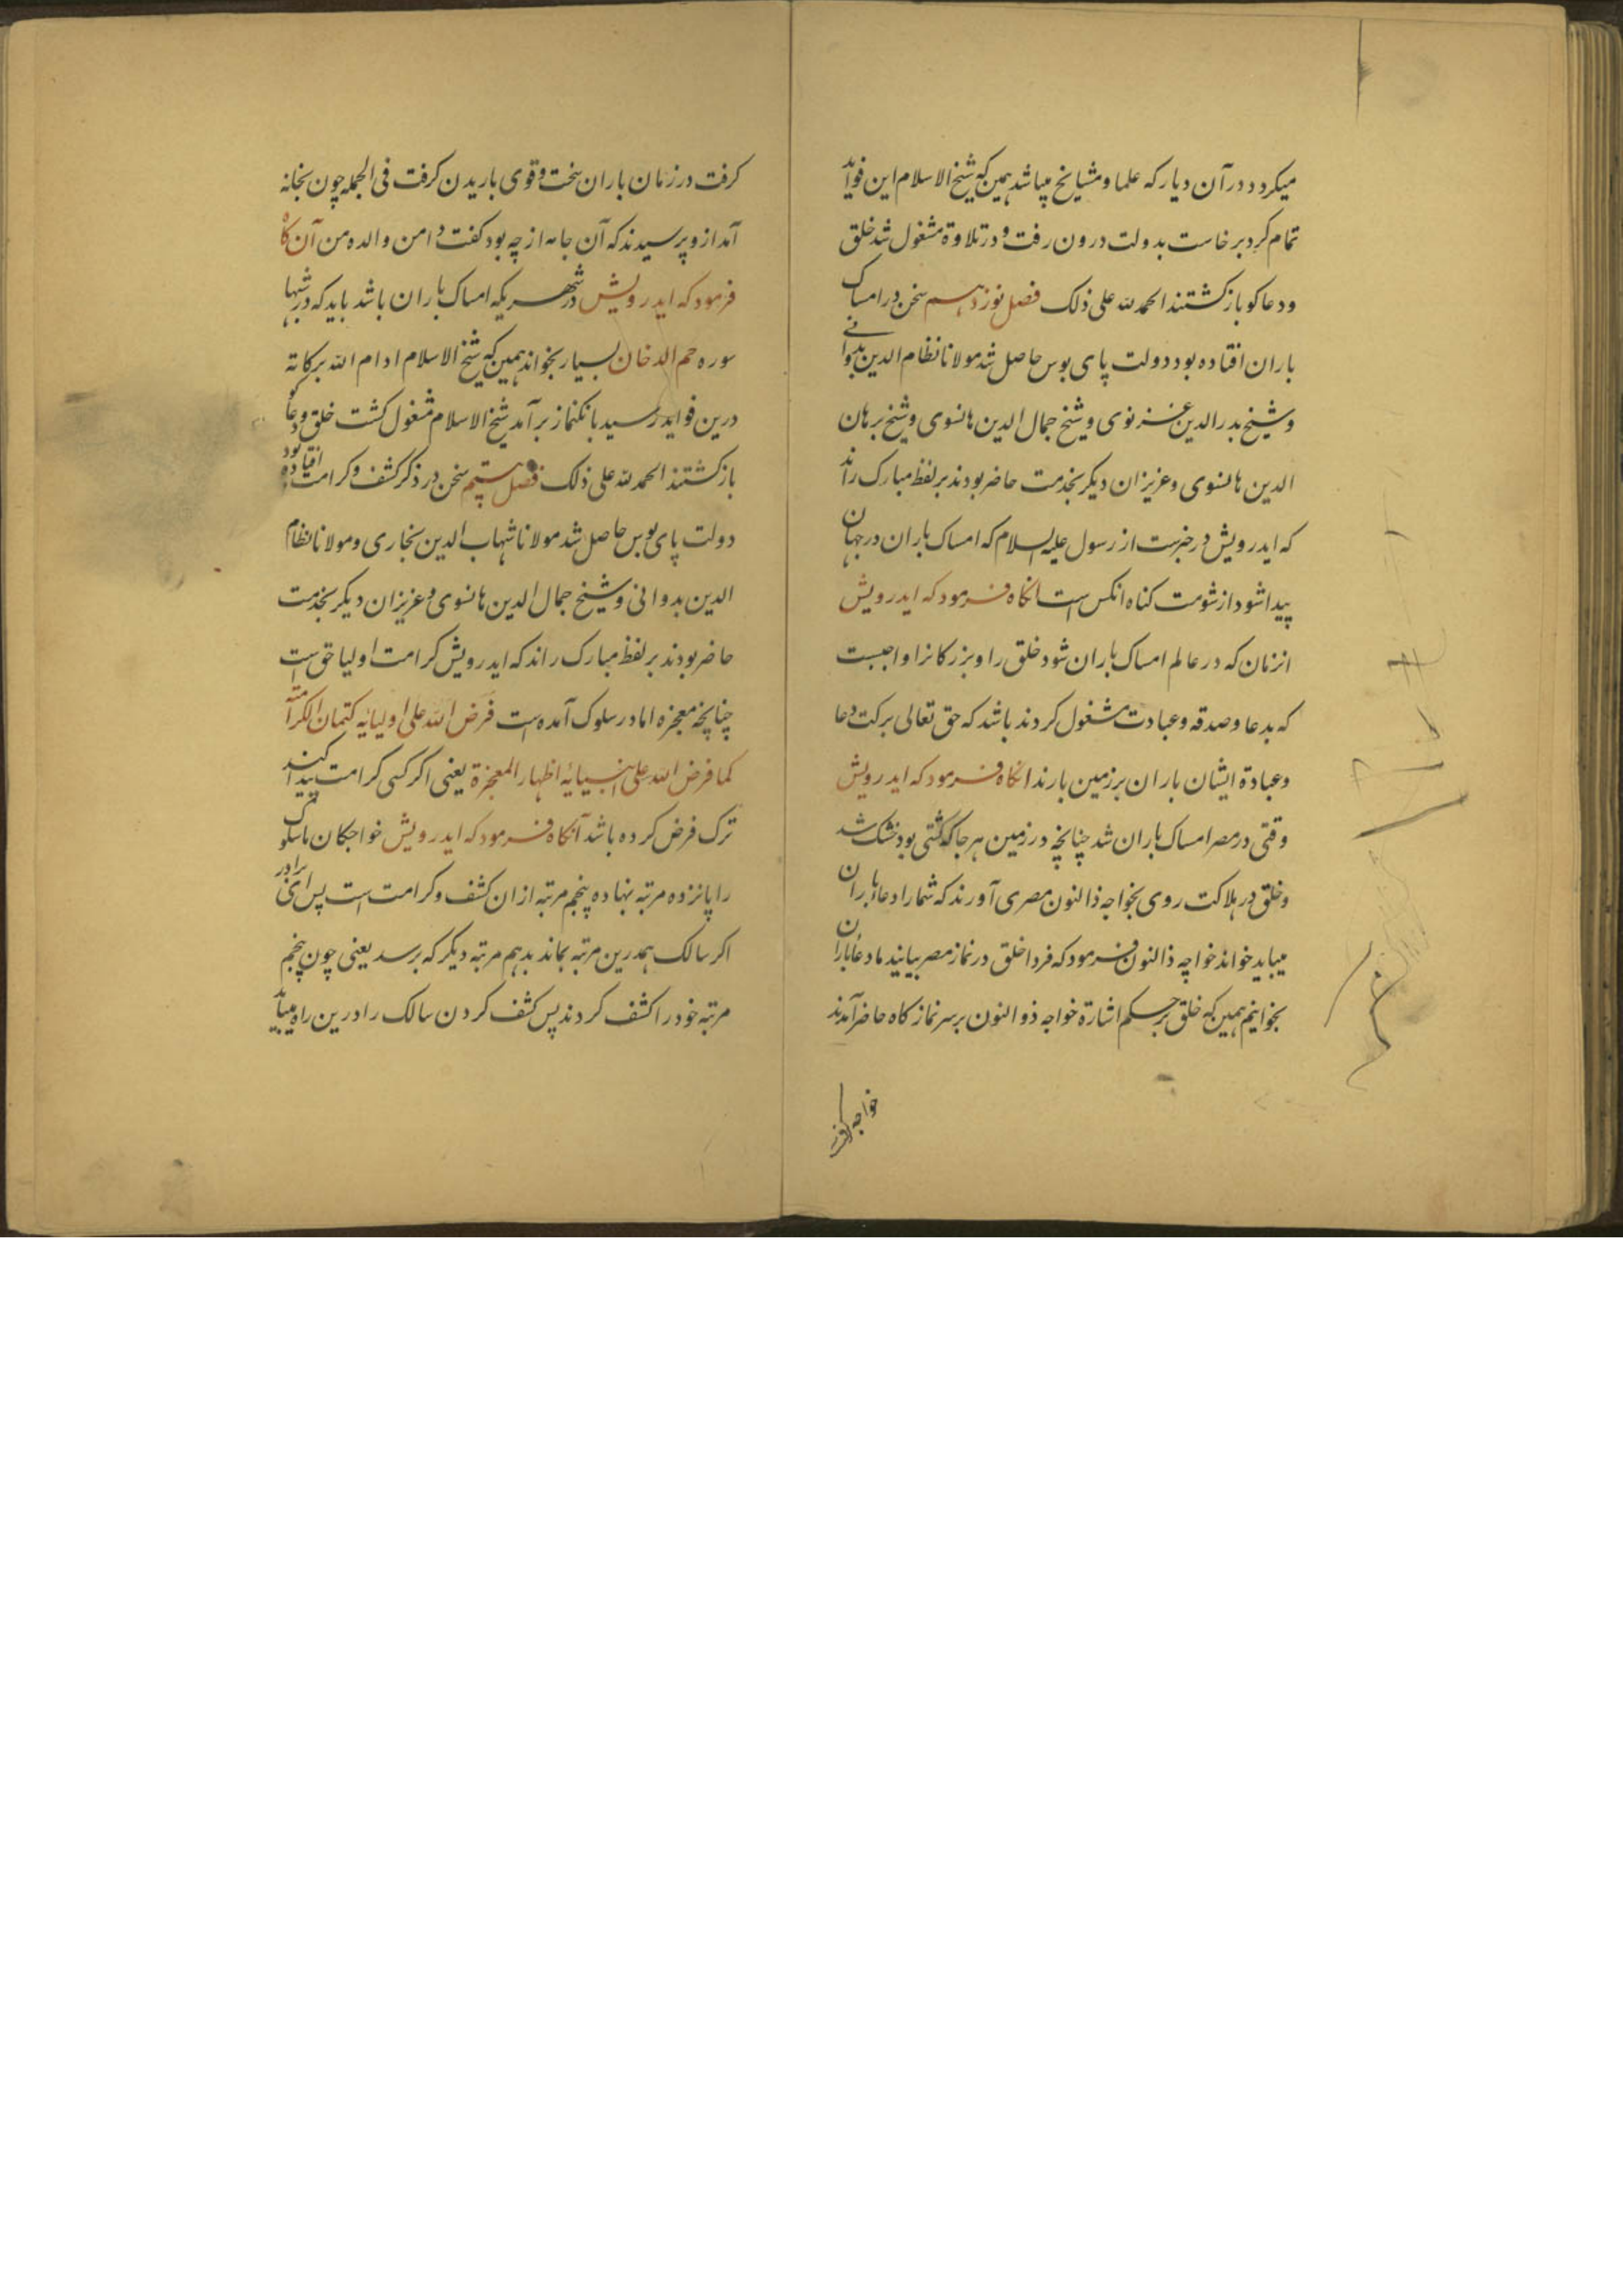 میکردد در آن دیار که علما و مشایخ میباشد همین که شیخ الاسلام این فواید
تمام کرد برخاست بدولت درون رفت و در تلاوة مشغول شد خلق
و دعاکو بازکشتند الحمد لله علی ذلک فصل نوزدهم سخن در امساک
باران افتاده بود دولت پای بوس حاصل شد مولانا نظام الدین بدوانی
و شیخ بدر الدین غزنوی و شیخ جمال الدین هانسوی و شیخ برهان
الدین هانسوی و عزیزان دیکر بخدمت حاضر بودند بر لفظ مبارک راند
که ایدرویش در خبرست از رسول علیه السلام که امساک باران در جهان
پیدا شود از شومت کناه انکس است انکاه فرمود که ایدرویش
انزمان که در عالم امساک باران شود خلق را و بزرکانرا واجبست
که بدعا و صدقه و عبادت مشغول کردند باشد که حق تعالی برکت دعا
و عبادة ایشان باران بر زمین بارند انکاه فرمود که ایدرویش
وقتی در مصر امساک باران شد چنانچه در زمین هر جا که کشتی بود خشک شد
و خلق در هلاکت روی بخواجه ذالنون مصری آورند که شما را دعا باران
میباید خواند خواجه ذالنون فرمود که فردا خلق در نماز مصر بیایند ما دعا باران
بخوانیم همین که خلق بر حکم اشارة خواجه ذوالنون بر سر نماز کاه حاضر آمدند
خواجه
کرفت در زمان باران سخت و قوی باریدن کرفت فی الجمله چون بخانه
آمد ازو پرسیدند که آن جامه از چه بود کفت دامن والده من آن کاه
فرمود که ایدرویش در شهریکه امساک باران باشد باید که در شبها
سوره حم الدخان بسیار بخواند همین که شیخ الاسلام ادام الله برکاته
درین فواید رسید بانکنماز برآمد شیخ الاسلام مشغول کشت خلق و دعاکو
بازکشتند الحمد لله علی ذلک فصل بیستم سخن در ذکر کشف و کرامت افتاده بود
دولت پای بوس حاصل شد مولانا شهاب الدین بخاری و مولانا نظام
الدین بدوانی و شیخ جمال الدین هانسوی و عزیزان دیکر بخدمت
حاضر بودند بر لفظ مبارک راند که ایدرویش کرامت اولیا حق است
چنانچه معجزه اما در سلوک آمده است فرض الله علی اولیایه کتمان الکرامته
کما فرض الله علی انبیایه اظهار المعجزة یعنی اکر کسی کرامت پیدا کند
ترک فرض کرده باشد آنکاه فرمود که ایدرویش خواجکان ما سلوک
را پانزده مرتبه نهاده پنجم مرتبه ازان کشف و کرامت است پس ای برادر
اکر سالک همدرین مرتبه بماند بدهم مرتبه دیکر که برسد یعنی چون پنجم
مرتبه خود را کشف کردند پس کشف کردن سالک را درین راه میباید